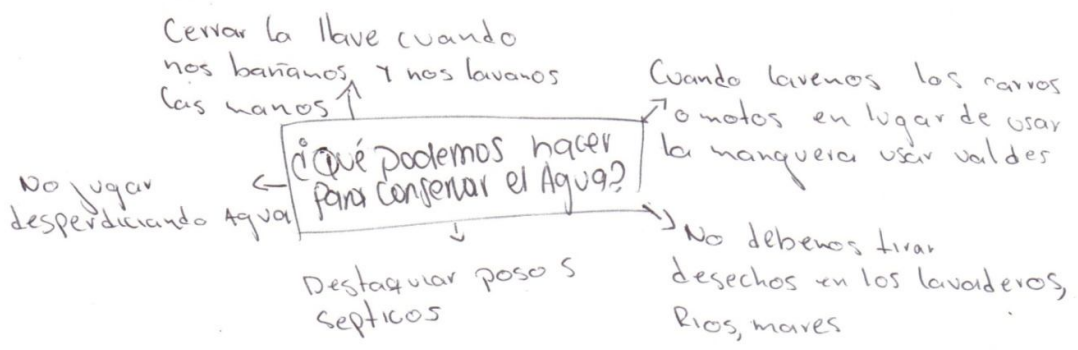 Cerrar la llave cuando
nos bañamos, y nos lavanos
las manos
Cuando lavemos los carros
o motos en lugar de usar
la manguera usar valdes
¿Qué podemos hacer
para conservar el Agua?
No jugar
desperdiciando Agua
No debemos tirar
desechos en los lavaderos,
Rios, mares
Destaquiar posos
septicos